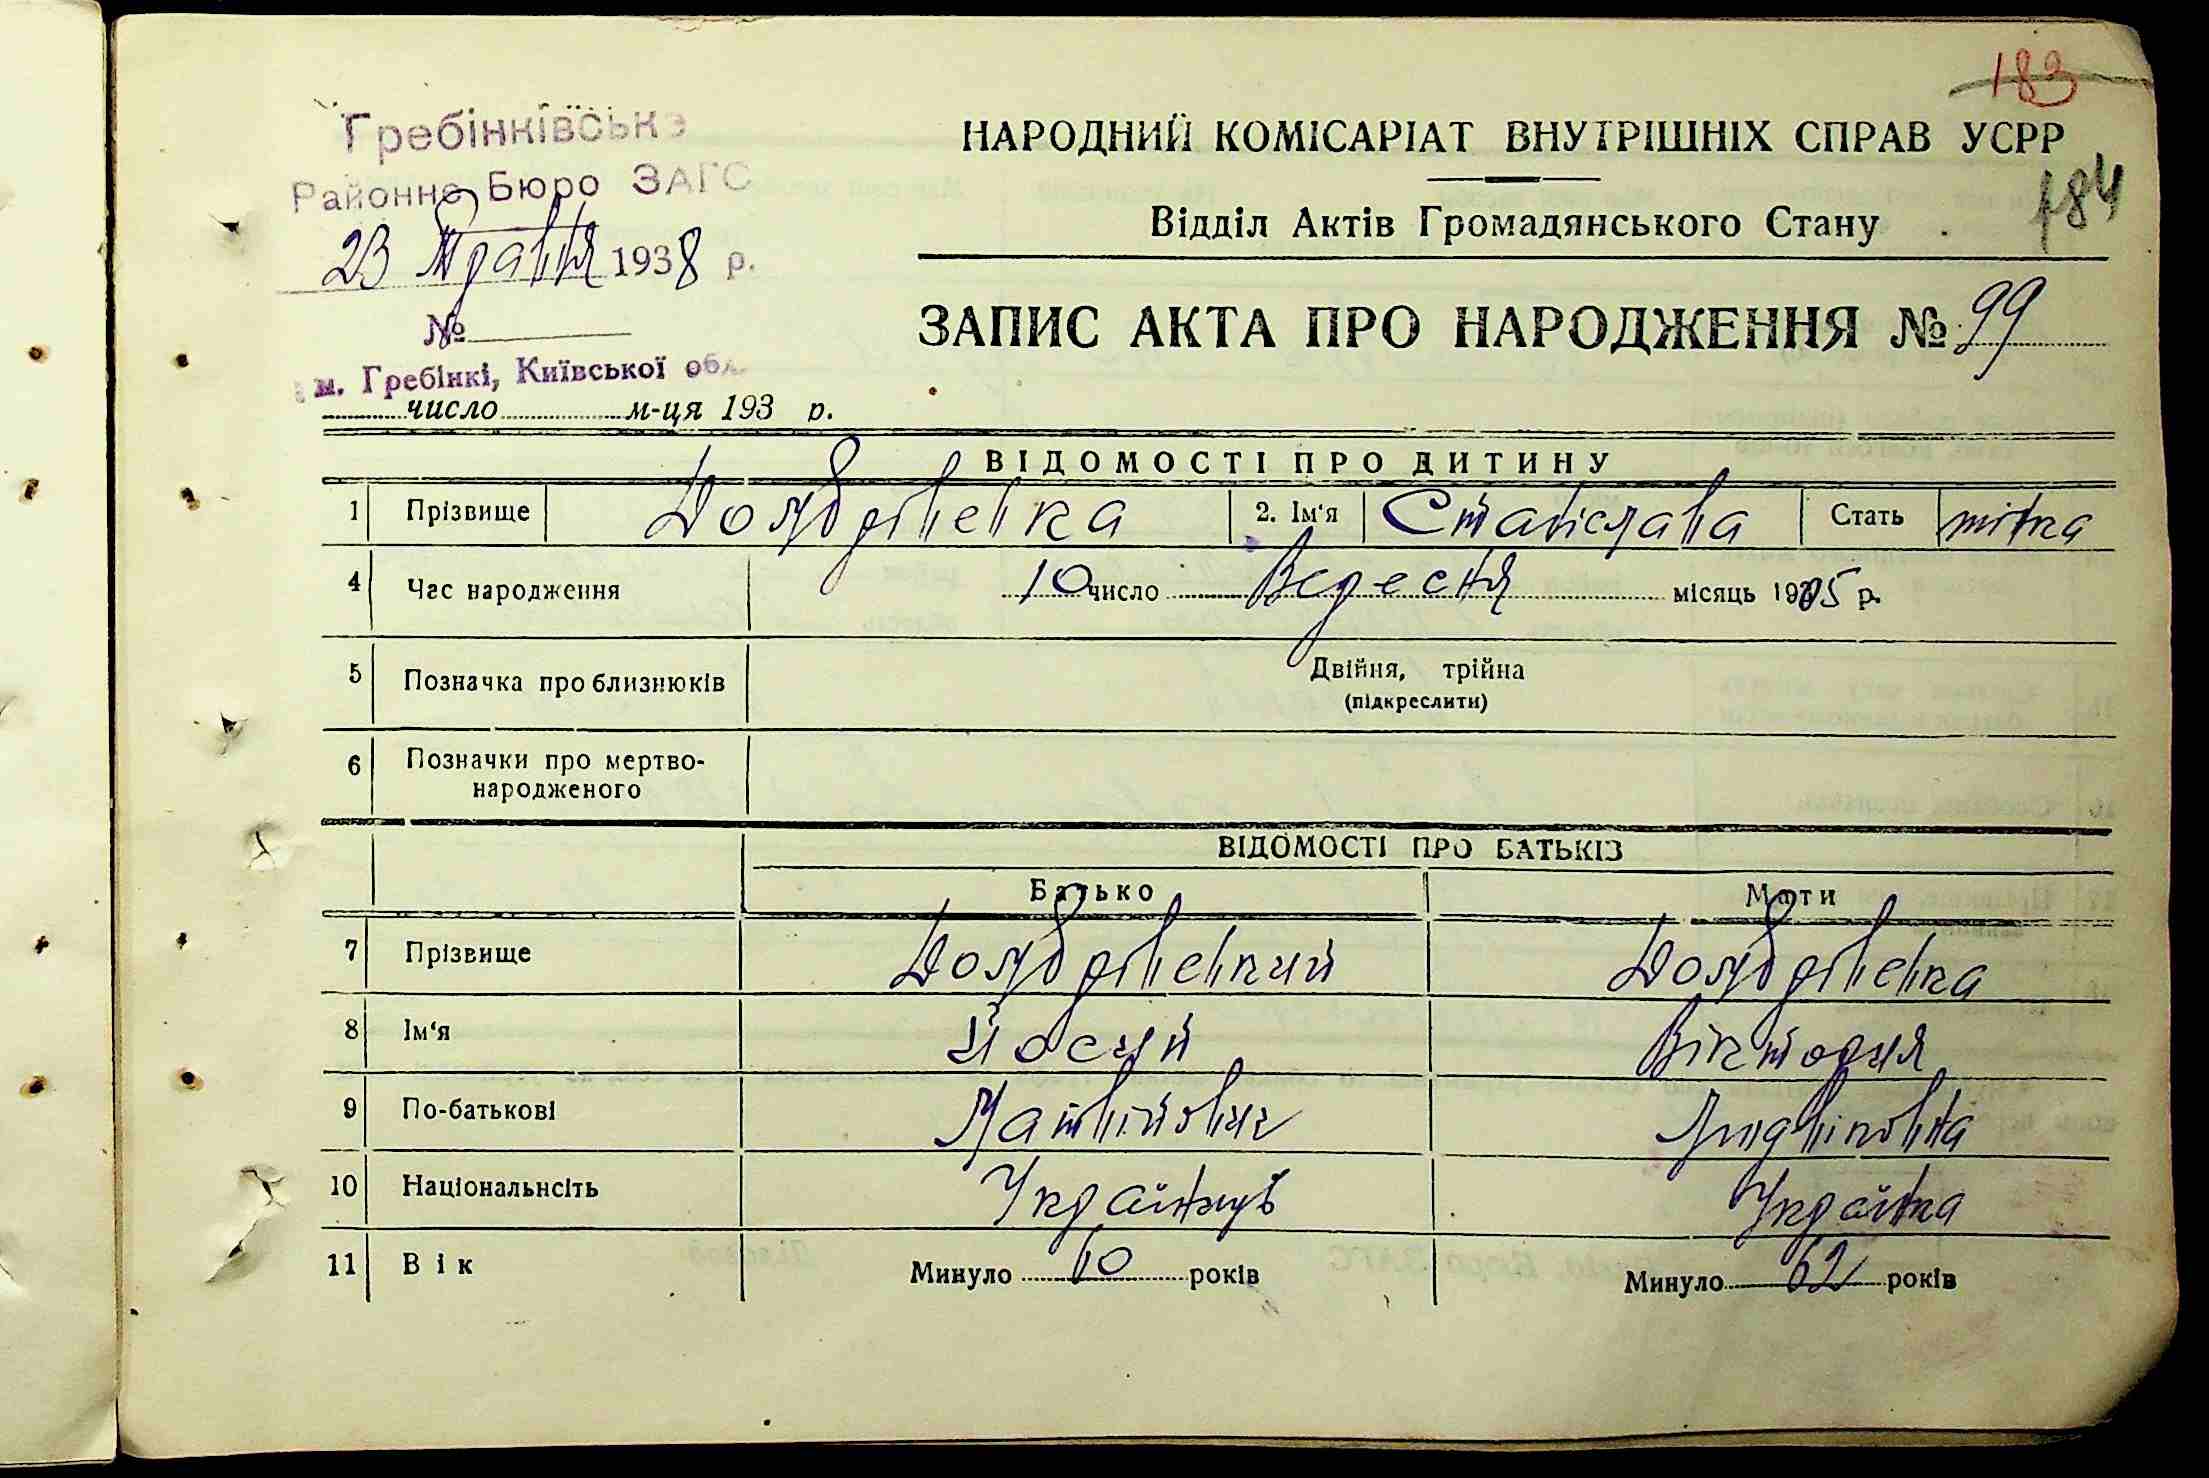 183
184
Гребінківське
Районне Бюро ЗАГС
23 Травня 1938 р.
№
м. Гребінкі, Київської обл.
число м-ця 193 р.
НАРОДНИЙ КОМІСАРІАТ ВНУТРІШНІХ СПРАВ УСРР
Відділ Актів Громадянського Стану
ЗАПИС АКТА ПРО НАРОДЖЕННЯ № 99
ВІДОМОСТІ ПРО ДИТИНУ
1 Прізвище Домбрівська 2. Ім'я Станіслава Стать жінка
4 Час народження 10 число Вересня місяць 1905 р.
5 Позначка про близнюків Двійня, трійна
(підкреслити)
6 Позначки про мертво-
народженого
ВІДОМОСТІ ПРО БАТЬКІВ
Батько Мати
7 Прізвище Домбрівский Домбрівска
8 Ім'я Йосип Вікторія
9 По-батькові Матвійович
10 Національнсіть Українць Українка
11 Вік Минуло 60 років Минуло 62 років